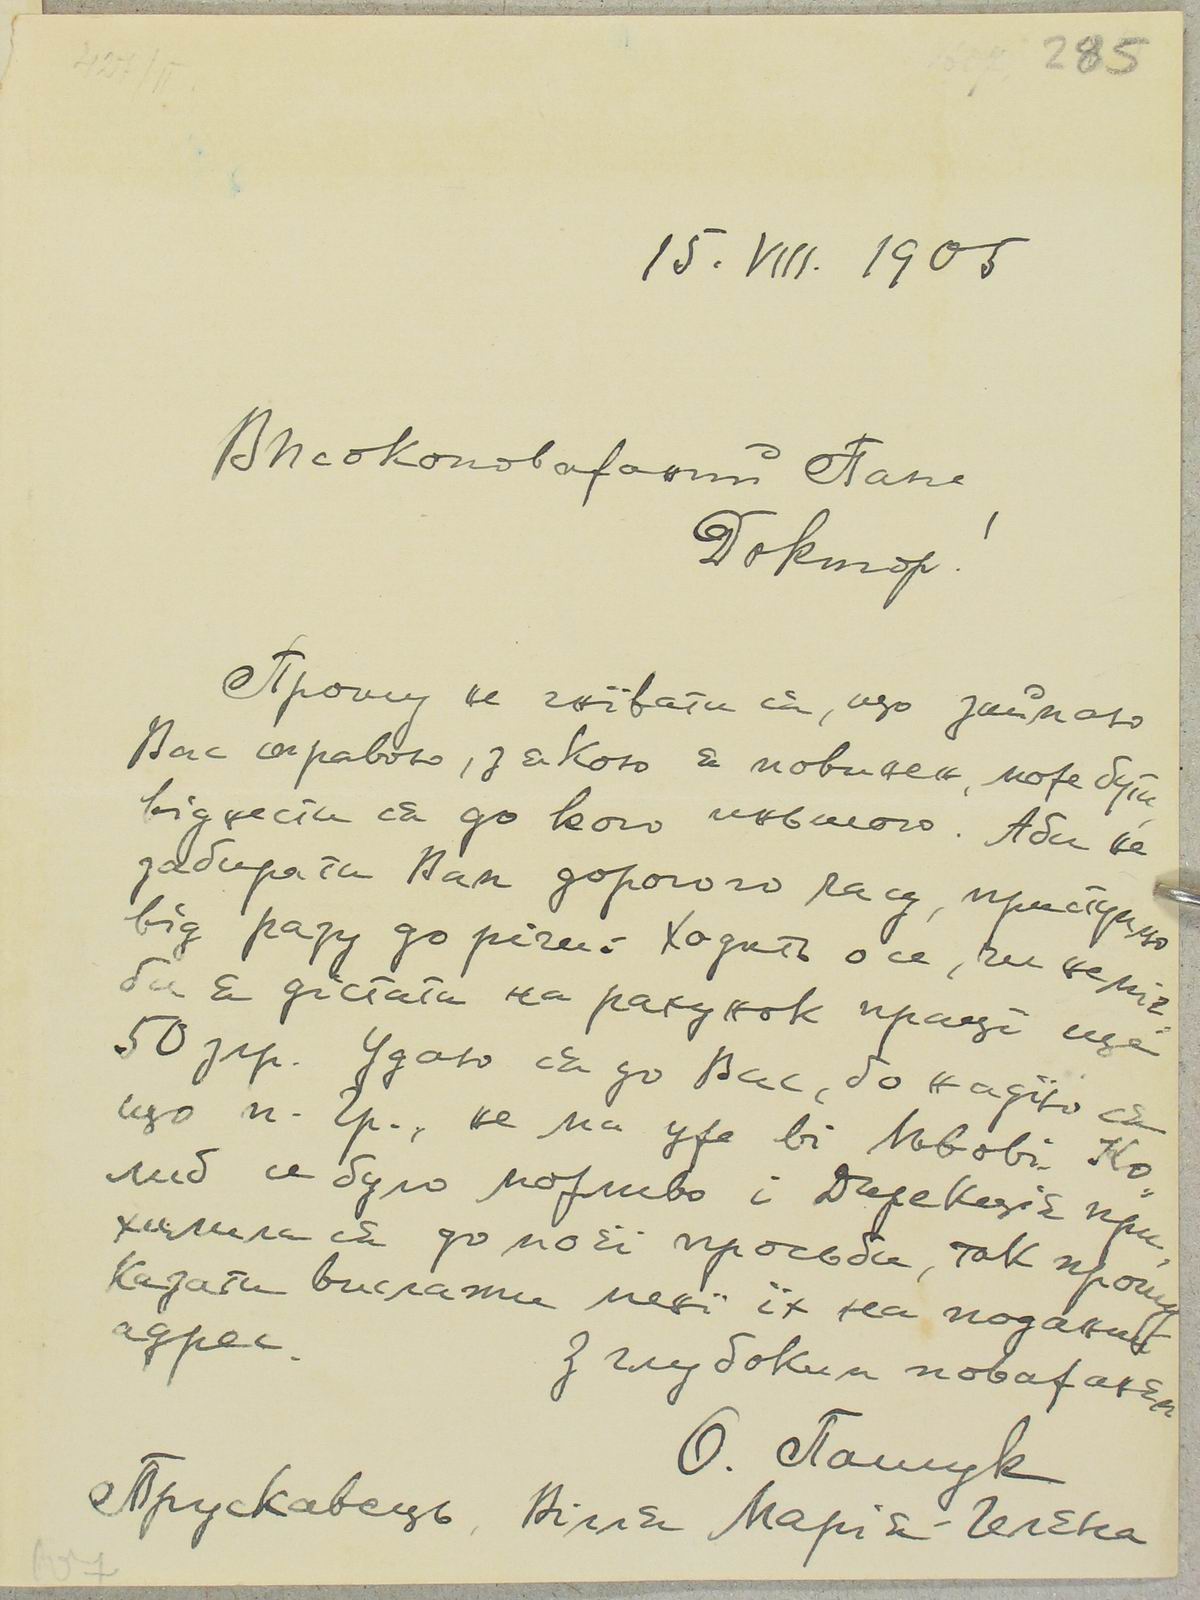 285
15. VIII. 1905
Високоповажаний Пане
Доктор!
Прошу не гнївати ся, що займаю
Вас справою, з якою я повинен, може бути,
віднести ся до кого иньшого. Аби не
забирати Вам дорогого часу, приступаю
від разу до річи: Ходить о се, чи не міг-
би я дістати на рахунок працї ще
50 зр. Удаю ся до Вас, бо надїю ся
що п. Гр., не ма уже ві Львові. Ко-
либ се було можливо і Дирекция при-
хилила ся до моєї просьби, так прошу
казати вислати менї їх на поданий
адрес.
З глубоким поважанєм
О. Пашук
Трускавець, Вілля Марія-Гелєна